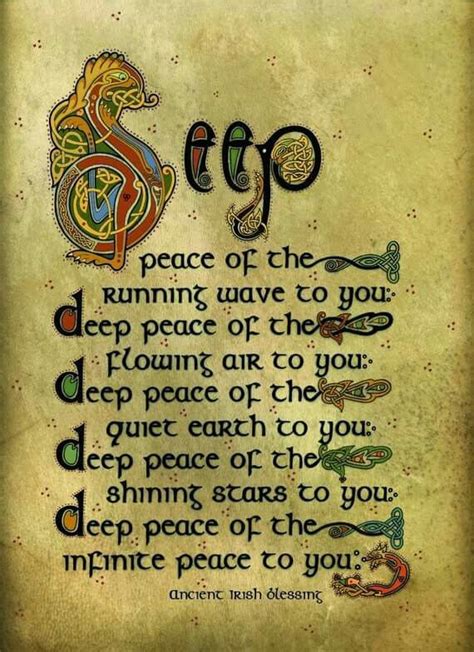 Deep
peace of the
running wave to you:
deep peace of the
flowing air to you:
deep peace of the
quiet earth to you:
deep peace of the
shining stars to you:
deep peace of the
infinite peace to you:
ancient irish blessing